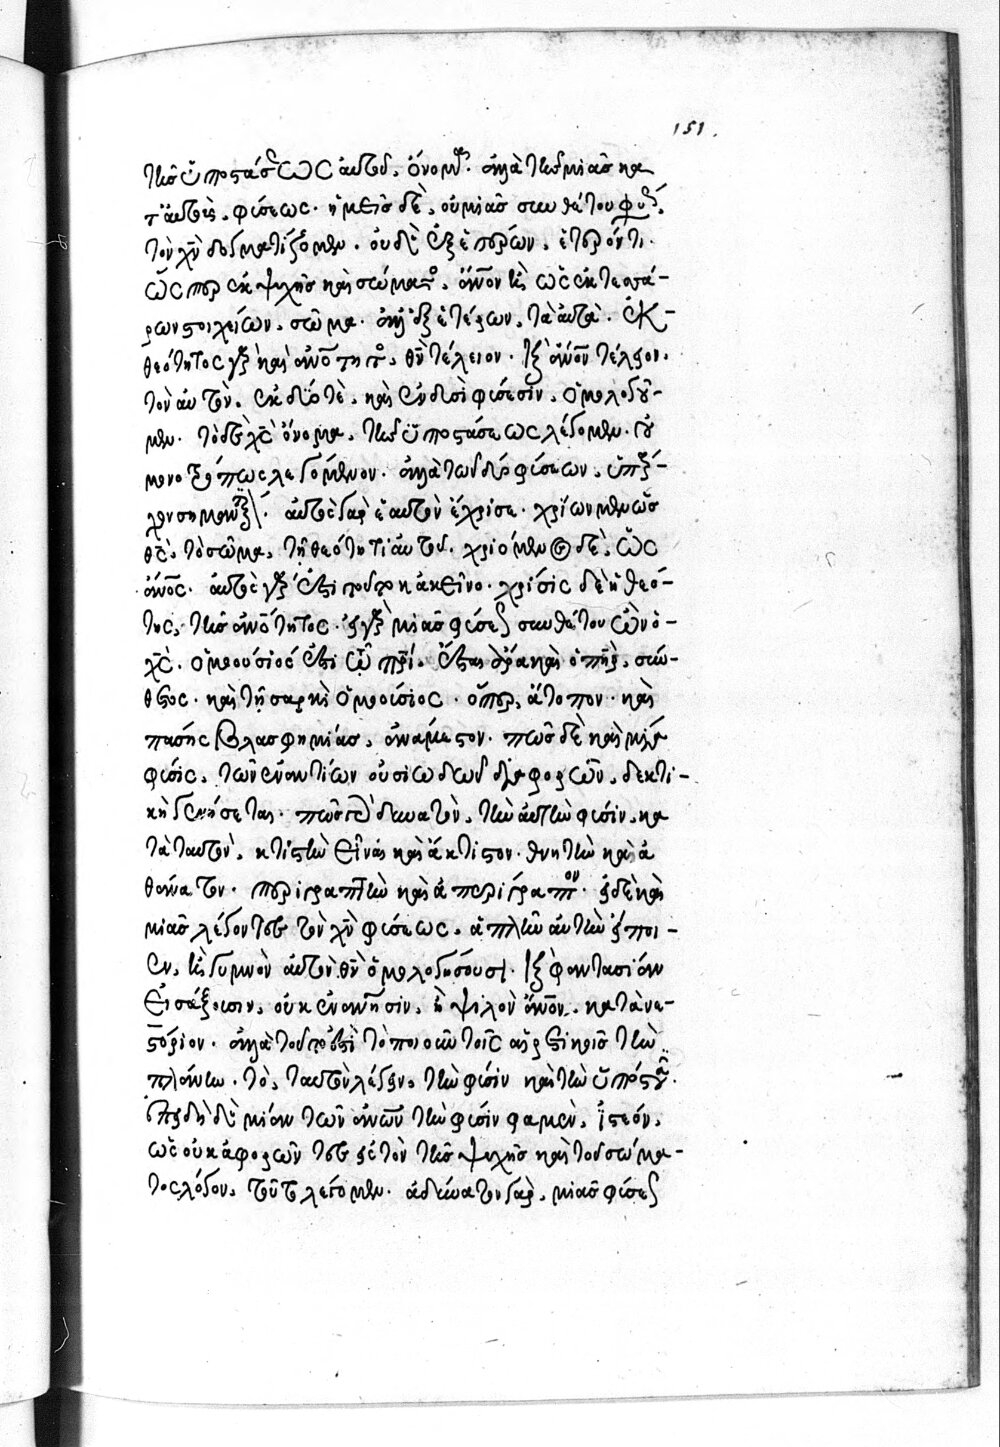 151.
τῆς ὑποστάσεως αὐτοῦ. ὄνομα. ἀλλὰ τῆς μιᾶς κα
τ' αὐτοὺς. φύσεως. ἡμεῖς δὲ, οὐ μιᾶς συνθέτου φύσ.
τὸν χν δογματίζομεν. οὐδὲ ἐξ ἑτέρων, ἕτερόν τι.
ὥσπερ ἐκ ψυχῆς καὶ σώματος. ἄνον ἢ ὡς ἐκ τεσσά-
ρων στοιχείων. σῶμα. ἀλλ' ἐξ ἑτέρων, τὰ αὐτὰ. ἐκ
θεότητος γὰρ καὶ ἀνότητος. θν τέλειον. καὶ ἄνον τέλειον.
τὸν αὐτὸν. ἐκ δύο τὲ, καὶ ἐν δυσὶ φύσεσιν. ὁμολογοῦ-
μεν. τὸ δὲ χς ὄνομα, τῆς ὑποστάσεως λέγομεν. οὐ
μονοτρόπως λεγόμενον. ἀλλὰ τῶν δύο φύσεων. ὑπάρ-
χον σημαντικόν. αὐτὸς γὰρ ἑαυτὸν ἔχρισε. χρίων μὲν ὡς
θς, τὸ σῶμα, τῇ θεότητι αὐτοῦ. χριόμενος δὲ, ὡς
ἄνος. αὐτὸς γάρ ἐστι τοῦτο κἀκεῖνο. χρίσις δὲ ἡ θεό-
της, τῆς ἀνότητος. εἰ γὰρ μιᾶς φύσεως συνθέτου ὢν ὁ
χς. ὁμοούσιός ἐστι τῷ πρί. ἔσται ἄρα καὶ ὁ πηρ, σύν-
θετος. καὶ τῇ σαρκὶ ὁμοούσιος. ὅπερ, ἄτοπον. καὶ
πάσης βλασφημίας, ἀνάμεστον. πῶς δὲ καὶ μία
φύσις, τῶν ἐναντίων οὐσιωδῶν διαφορῶν, δεκτι-
κὴ γενήσεται. πῶς γὰρ δυνατὸν, τὴν αὐτὴν φύσιν, κα
τὰ ταυτὸν, κτιστὴν εἶναι καὶ ἄκτιστον. θνητὴν καὶ ἀ
θάνατον. περιγραπτὴν καὶ ἀπερίγραπτον. εἰ δὲ καὶ
μιᾶς λέγοντες τὸν χν φύσεως. ἁπλῆν αὐτὴν εἴποι-
εν, ἢ γυμνὸν αὐτὸν θν ὁμολογήσουσι. καὶ φαντασίαν
εἰσάξουσιν, οὐκ ἐνανθρώπησιν. ἢ ψιλὸν ἄνον. κατὰ νε-
στόριον. ἀλλὰ τοῦτό ἐστι τὸ ποιοῦν τοῖς αἱρετικοῖς τὴν
πλάνην. τὸ, ταυτὸν λέγειν, τὴν φύσιν καὶ τὴν ὑπόστασιν.
ἐπειδὴ δὲ μίαν τῶν ἀνων τὴν φύσιν φαμὲν, ἰστέον.
ὡς οὐκ ἀφορῶντες εἰς τὸν τῆς ψυχῆς καὶ τοῦ σώμα-
τος λόγον. τοῦτο λέγομεν. ἀδύνατον γὰρ, μιᾶς φύσεως